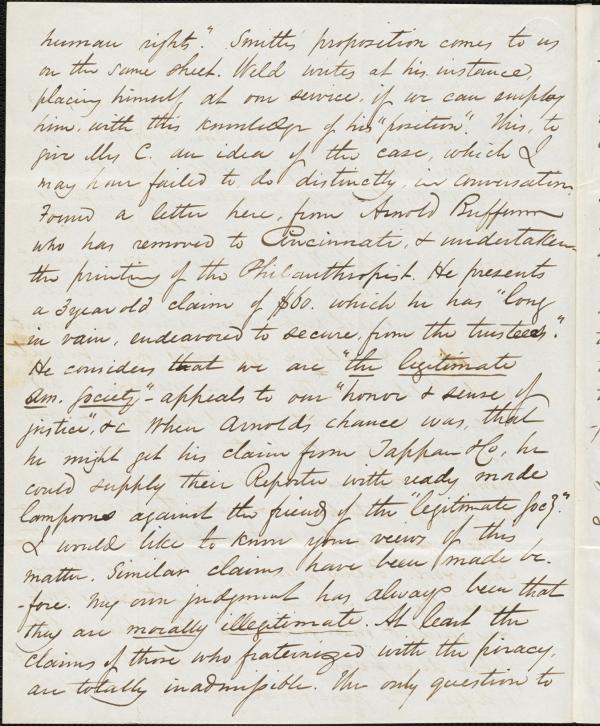 human rights". Smith's proposition comes to us
on the same sheet. Weld writes at his instance,
placing himself at our service, if we can employ
him, with this knowledge of his "position". This, to
give Mrs C. an idea of the case, which I
may have failed to do distinctly, in conversation.
Found a letter here, from Arnold Buffum
who has removed to Cincinnati, & undertaken
the printing of the Philanthropist. He presents
a 3 year old claim of $60. which he has "long
in vain, endeavored to secure, from the trustees".
He considers that we are "the legitimate
Am. Society" - appeals to our "honor & sense of
justice", &c When Arnold's chance was, that
he might get his claim from Tappan & Co, he
could supply their Reporter with ready made
lampoons against the friends of the "legitimate Soc'y."
I would like to know your views of this
matter. Similar claims have been made be-
-fore. My own judgment has always been that
they are morally illegitimate. At least the
claims of those who fraternized with the piracy,
are totally inadmissible. The only question to